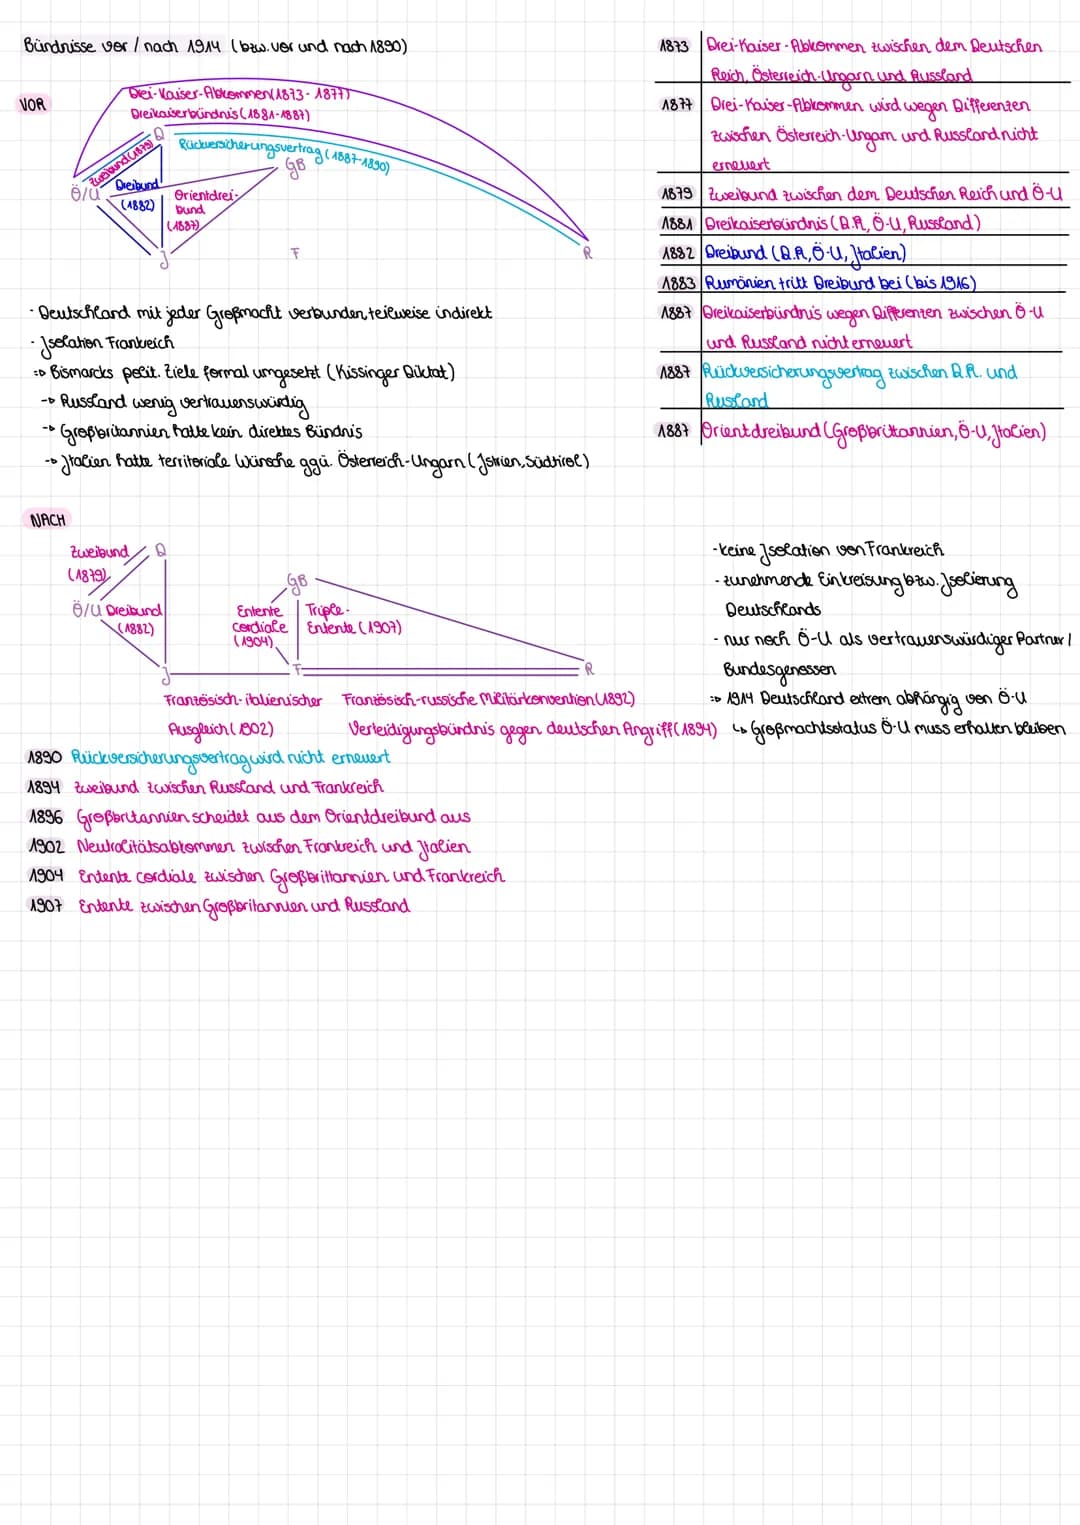 Bündnisse vor / nach 1914 (bzw. vor und nach 1890)
VOR
Drei-Kaiser-Abkommen (1873-1877)
Dreikaiserbündnis (1881-1887)
D
Rückversicherungsvertrag (1887-1890)
Zweibund (1879)
GB
Ö/U
Dreibund
(1882)
Orientdrei-
bund
(1887)
J
F
R
- Deutschland mit jeder Großmacht verbunden, teilweise indirekt
- Isolation Frankreich
=> Bismarcks polit. Ziele formal umgesetzt (Kissinger Diktat)
-> Russland wenig vertrauenswürdig
-> Großbritannien hatte kein direktes Bündnis
-> Italien hatte territoriale Wünsche ggü. Österreich-Ungarn (Istrien, Südtirol)
1873 Drei-Kaiser-Abkommen zwischen dem Deutschen
Reich, Österreich-Ungarn und Russland
1877 Drei-Kaiser-Abkommen wird wegen Differenzen
zwischen Österreich-Ungarn und Russland nicht
erneuert
1879 Zweibund zwischen dem Deutschen Reich und Ö-U
1881 Dreikaiserbündnis (D.R, Ö-U, Russland)
1882 Dreibund (D.R, Ö-U, Italien)
1883 Rumänien tritt Dreibund bei (bis 1916)
1887 Dreikaiserbündnis wegen Differenzen zwischen Ö-U
und Russland nicht erneuert
1887 Rückversicherungsvertrag zwischen D.R. und
Russland
1887 Orientdreibund (Großbrittannien, Ö-U, Italien)
NACH
Zweibund
(1879)
D
Ö/U
Dreibund
(1882)
GB
Entente
cordiale
(1904)
Triple-
Entente (1907)
J
F
R
Französisch-italienischer
Ausgleich (1902)
Französisch-russische Militärkonvention (1892)
Verteidigungsbündnis gegen deutschen Angriff (1894)
- keine Isolation von Frankreich
- zunehmende Einkreisung bzw. Isolierung
Deutschlands
- nur noch Ö-U als vertrauenswürdiger Partner /
Bundesgenossen
=> 1914 Deutschland extrem abhängig von Ö-U
↳ Großmachtsstatus Ö-U muss erhalten bleiben
1890 Rückversicherungsvertrag wird nicht erneuert
1894 Zweibund zwischen Russland und Frankreich
1896 Großbritannien scheidet aus dem Orientdreibund aus
1902 Neutralitätsabkommen zwischen Frankreich und Italien
1904 Entente cordiale zwischen Großbrittannien und Frankreich
1907 Entente zwischen Großbritannien und Russland